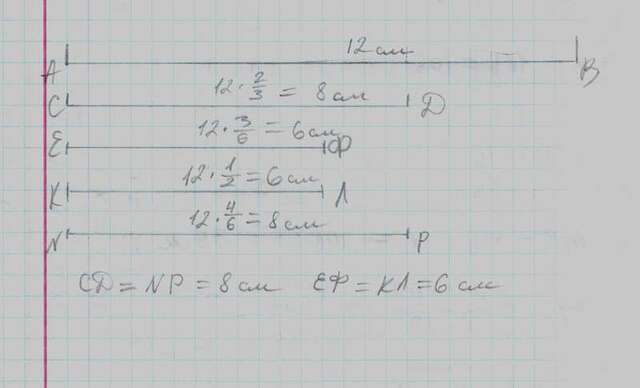 12 см
A B
12 · 2/3 = 8 см
C Д
12 · 3/6 = 6 см
E Ф
12 · 1/2 = 6 см
K Л
12 · 4/6 = 8 см
N P
CД = NP = 8 см EФ = KЛ = 6 см